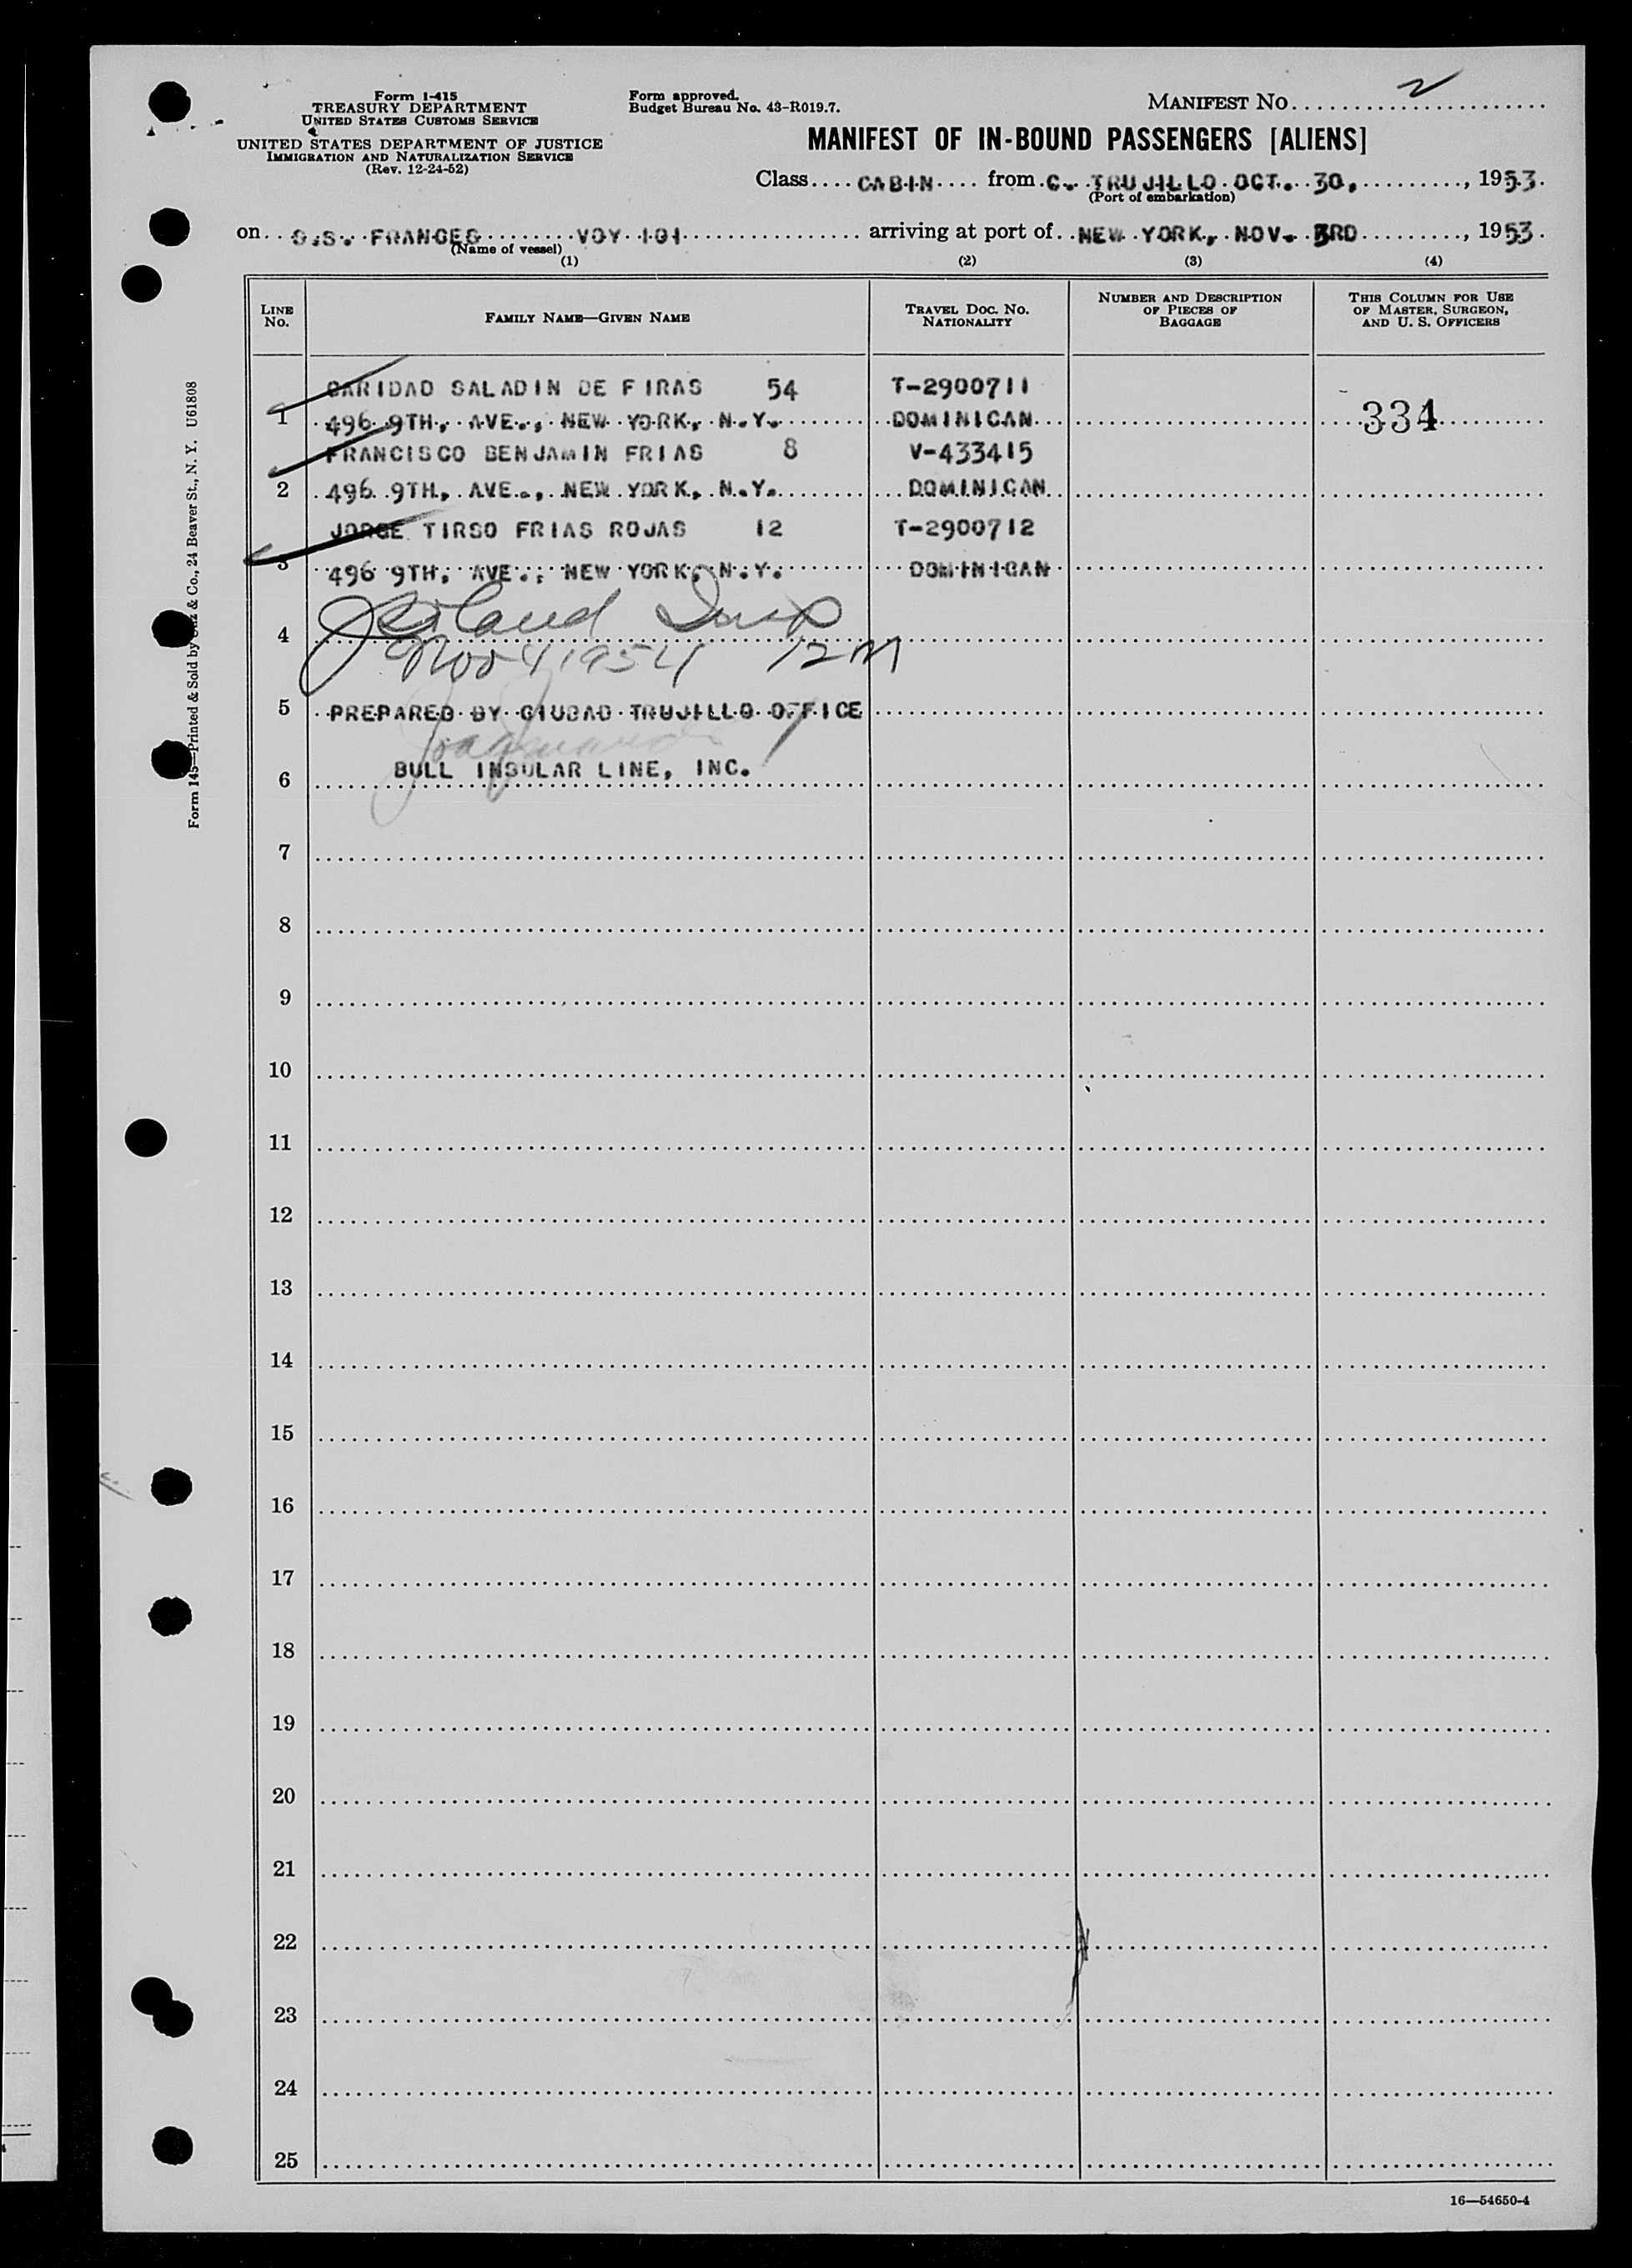 Form I-415
TREASURY DEPARTMENT
UNITED STATES CUSTOMS SERVICE
UNITED STATES DEPARTMENT OF JUSTICE
IMMIGRATION AND NATURALIZATION SERVICE
(Rev. 12-24-52)
Form approved.
Budget Bureau No. 43-R019.7.
MANIFEST NO. 2
MANIFEST OF IN-BOUND PASSENGERS [ALIENS]
Class CABIN from C. TRUJILLO OCT. 30, , 1953.
(Port of embarkation)
on S.S. FRANCES VOY 101 arriving at port of NEW YORK, NOV. 3RD , 1953.
(Name of vessel)
(1) (2) (3) (4)
LINE NO.
FAMILY NAME—GIVEN NAME
TRAVEL DOC. NO. NATIONALITY
NUMBER AND DESCRIPTION OF PIECES OF BAGGAGE
THIS COLUMN FOR USE OF MASTER, SURGEON, AND U. S. OFFICERS
CARIDAD SALADIN DE FIRAS 54 T-2900711
1 496 9TH, AVE., NEW YORK, N.Y. DOMINICAN 334
FRANCISCO BENJAMIN FRIAS 8 V-433415
2 496 9TH, AVE., NEW YORK, N.Y. DOMINICAN
JORGE TIRSO FRIAS ROJAS 12 T-2900712
3 496 9TH, AVE., NEW YORK, N.Y. DOMINICAN
4
Nov 4 1954 12M
5 PREPARED BY CIUDAD TRUJILLO OFFICE
BULL INSULAR LINE, INC.
6
7
8
9
10
11
12
13
14
15
16
17
18
19
20
21
22
23
24
25
16—54650-4
Form 145—Printed & Sold by & Co., 24 Beaver St., N. Y. U61808